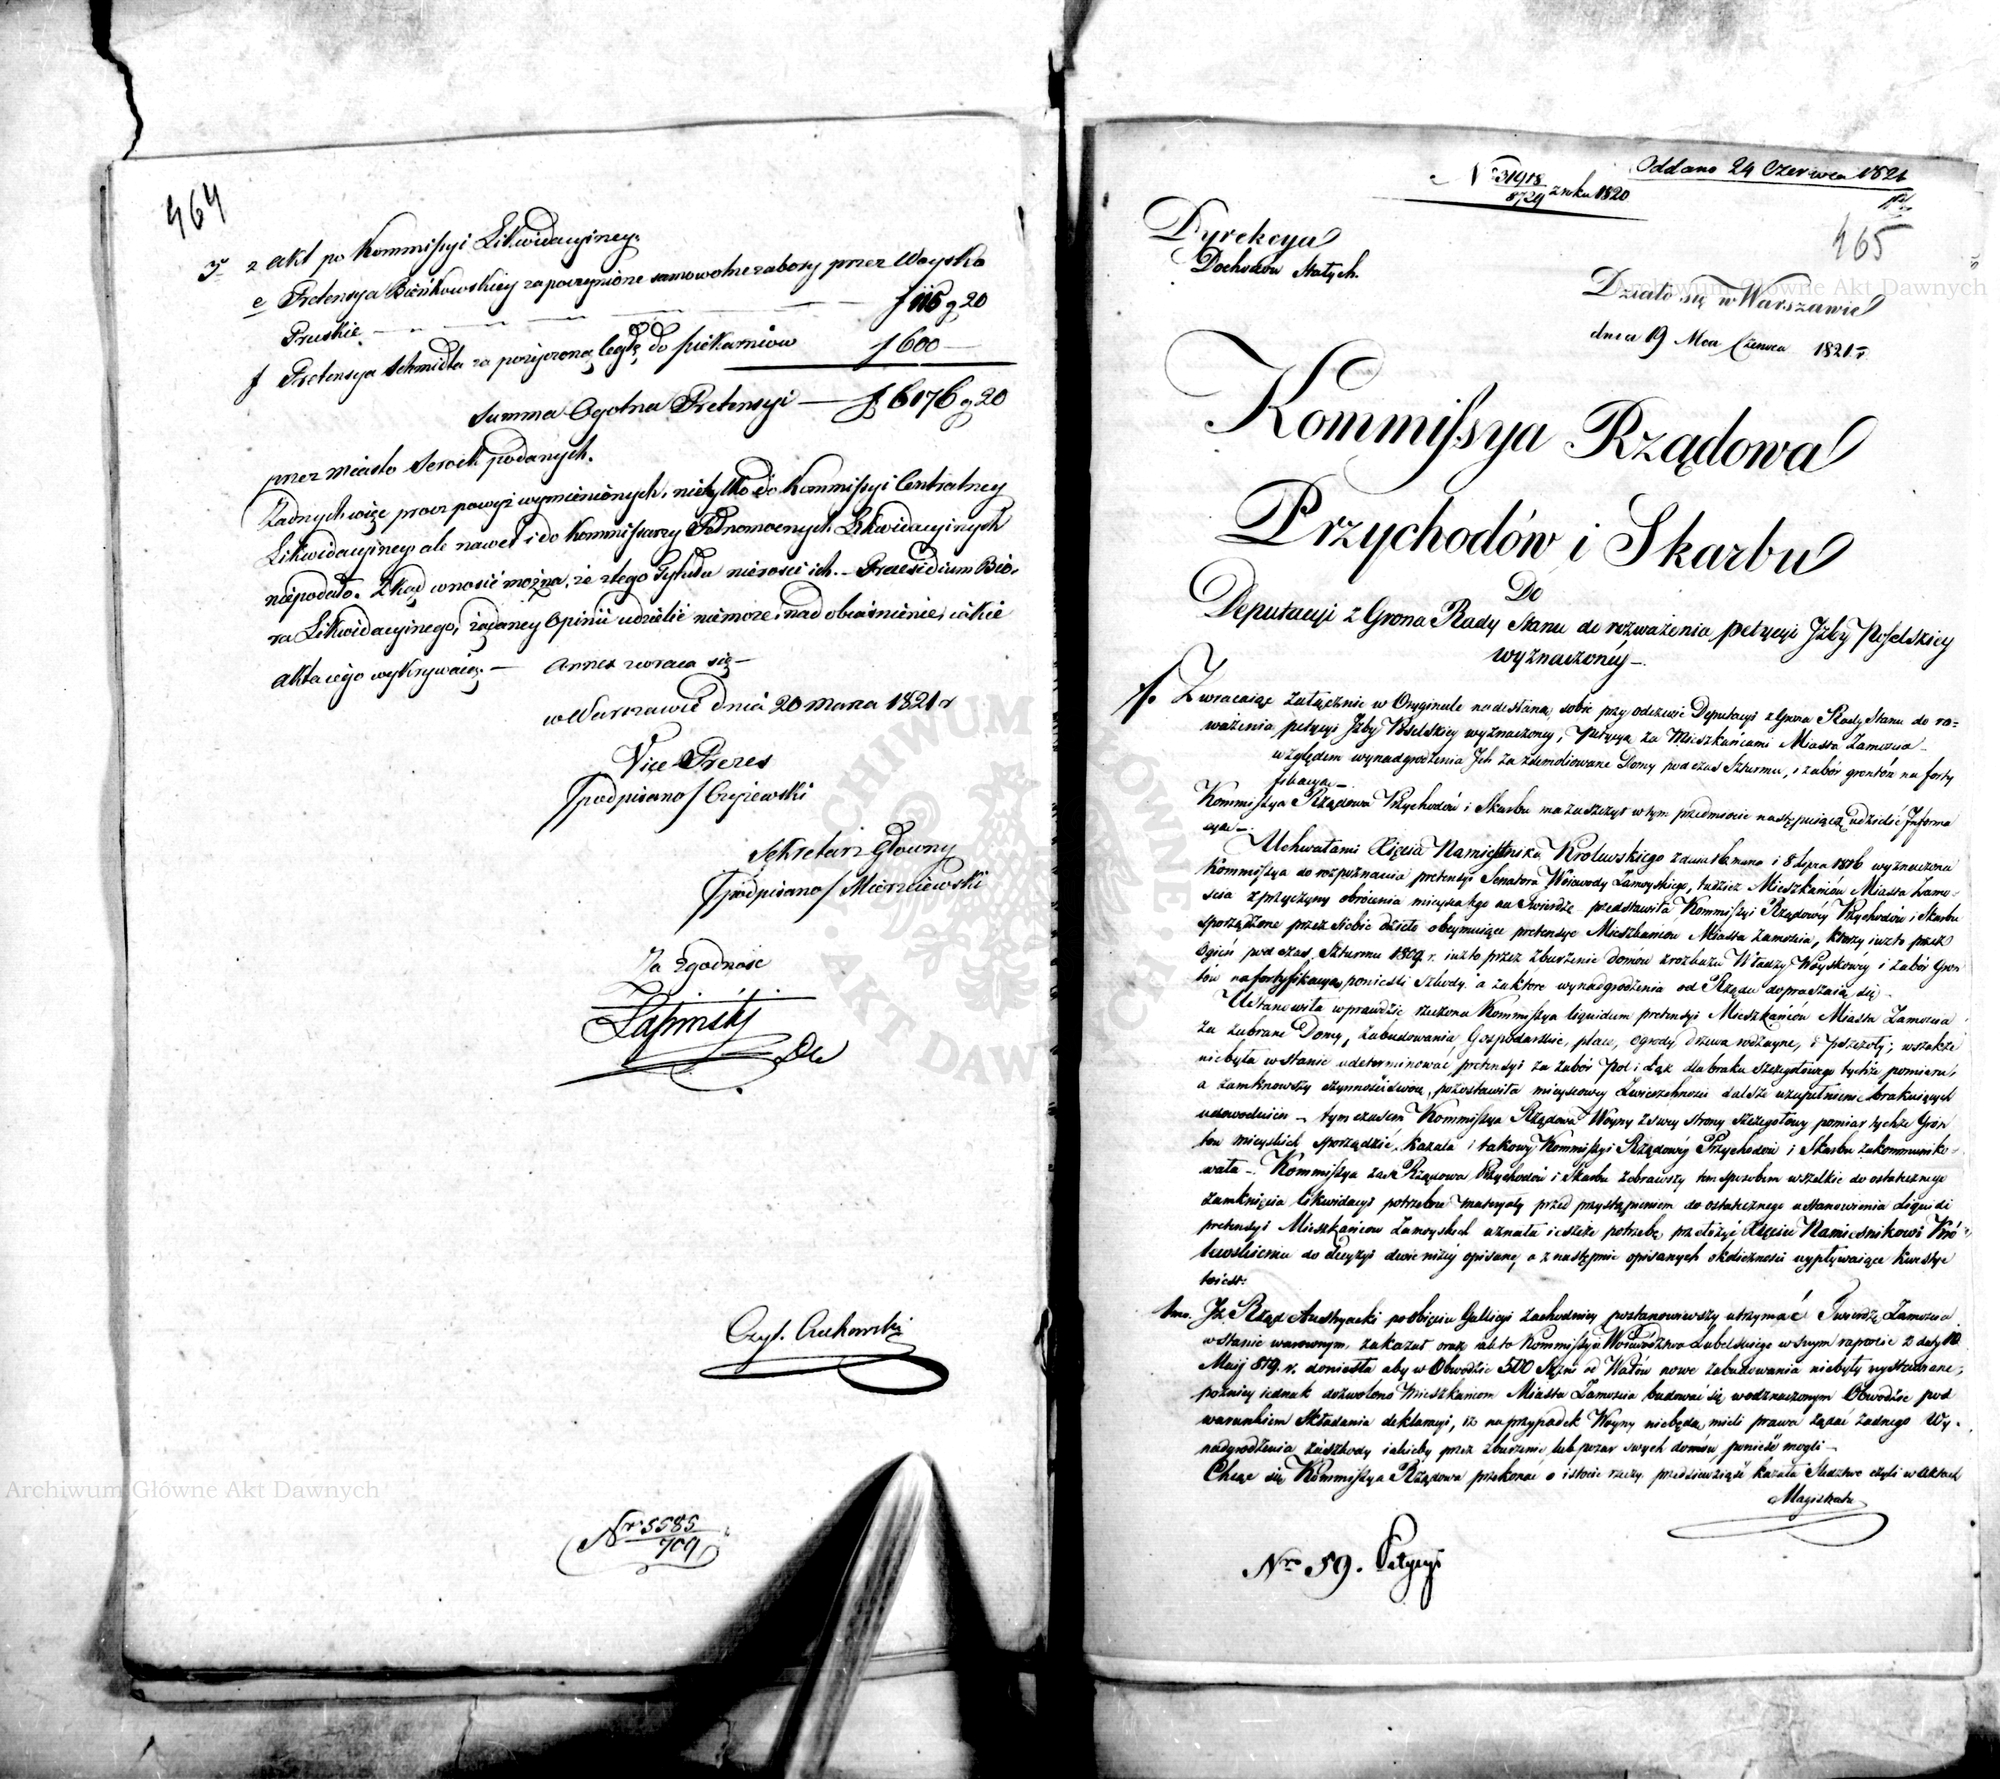 464
3° z akt po Kommissyi Likwidacyiney.
e Pretensya Bieńkowskiey za poczynione samowolne zabory przez Woysko
Pruskie — f 115 g 20
f Pretensya Schmidta za pożyczoną cegłę do piekarniów f 600 —
Summa Ogolna Pretensyi — f 6176 g 20
przez Miasto Serock podanych.
Żadnych więc procz powyż wymienionych, nietylko do Kommissyi Centralney
Likwidacyiney, ale nawet i do Kommissarzy Pełnomocnych Likwidacyinych
niepodało. Zkąd wnosić można, że z tego Tytułu nierości ich. — Praesidium Biu-
ra Likwidacyinego, żądaney Opinii udzielić niemoże, nad obiaśnienie, iakie
akta iego wykrywaią. — Annex zwraca się —
w Warszawie dnia 20 marca 1821 r
Vice Prezes
/podpisano/ Czyżewski
Sekretarz Główny
/podpisano/ Mierzeiewski
Za Zgodność
Łapiński
Czyt. Czekowski
Nr 5585
709
Archiwum Główne Akt Dawnych
Oddano 24 Czerwca 1821
No 31918
8729 z roku 1820
465
Dyrekcya
Dochodów Stałych.
Archiwum Główne Akt Dawnych
Działo się w Warszawie
dnia 19 Mca Czerwca 1821 r.
Kommissya Rządowa
Przychodów i Skarbu
Do
Deputacyi z Grona Rady Stanu do rozważenia petycyi Izby Poselskiey
wyznaczoney —
Zwracaiąc załącznie w Oryginale nadesłaną sobie przy odezwie Deputacyi z Grona Rady Stanu do roz-
ważenia petycyi Izby Poselskiey wyznaczoney, Petycyą za Mieszkańcami Miasta Zamościa
względem wynadgrodzenia Ich za zdemoliowane Domy podczas Szturmu, i zabór gruntów na forty
fikacyą —
Kommissya Rządowa Przychodów i Skarbu ma zaszczyt w tym przedmiocie następuiącą udzielić Informa
cyą —
Uchwałami Xięcia Namiestnika Królewskiego z dnia 16 marca i 8 lipca 1816 wyznaczona
Kommissya do rozpoznania pretensyi Senatora Woiewody Zamoyskiego, tudzież Mieszkańców Miasta Zamo-
ścia z przyczyny obrócenia mieysca tego na Twierdzę przedstawiła Kommissyi Rządowey Przychodów i Skarbu
sporządzone przez siebie dzieło obeymuiące pretensye Mieszkańców Miasta Zamościa, którzy iuż to przez
Ogień podczas Szturmu 1809 r. iuż to przez zburzenie domów z rozkazu Władzy Woyskowey i zabór Grun
tów na fortyfikacyą, ponieśli szkody, a za które wynadgrodzenia od Rządu dopraszaią się —
Ustanowiła wprawdzie rzeczona Kommissya liquidum pretensyi Mieszkańców Miasta Zamościa
za zabrane Domy, zabudowania Gospodarskie, place, ogrody, drzewa rodzayne, i pszczoły; wszakże
niebyła w stanie udeterminować pretensyi za zabór Pól i Łąk dla braku szczegółowego tychże pomiaru,
a zamknąwszy czynności swoie, pozostawiła mieyscowey Zwierzchności dalsze uzupełnienie brakuiących
udowodnień — tymczasem Kommissya Rządowa Woyny z swey strony szczegółowy pomiar tychże Grun
tów mieyskich sporządzić kazała i takowy Kommissyi Rządowey Przychodów i Skarbu zakommuniko-
wała — Kommissya zaś Rządowa Przychodów i Skarbu zebrawszy tem sposobem wszelkie do ostatecznego
zamknięcia likwidacyi potrzebne materyały przed przystąpieniem do ostatecznego ustanowienia Liquidi
pretensyi Mieszkańców Zamoyskich uznała ieszcze potrzebę przełożyć Xięciu Namiestnikowi Kró-
lewskiemu do decyzyi dwie niżey opisane, a z następnie opisanych okoliczności wypływaiące kwestye
to iest:
1mo. Iż Rząd Austryacki po obięciu Gallicyi Zachodniey postanowiwszy utrzymać Twierdzę Zamościa
w stanie warownym, zakazał oraz iak to Kommissya Woiewództwa Lubelskiego w swym raporcie z daty 10
Maij 819. r. doniosła aby w Obwodzie 500 Sążni od Wałów nowe zabudowania niebyły wystawiane,
pożniey iednak dozwolono mieszkańcom Miasta Zamościa budować się w odznaczonym Obwodzie pod
warunkiem Składania deklaracyi, iż na przypadek Woyny niebędą mieli prawa żądać żadnego Wy-
nadgrodzenia za szkody iakieby przez zburzenie lub pożar swych domów ponieść mogli —
Chcąc się Kommissya Rządowa przekonać o istocie rzeczy, przedsięwziąść kazała śledztwo czyli w Aktach
Magistratu
Nro 59. Petycyi